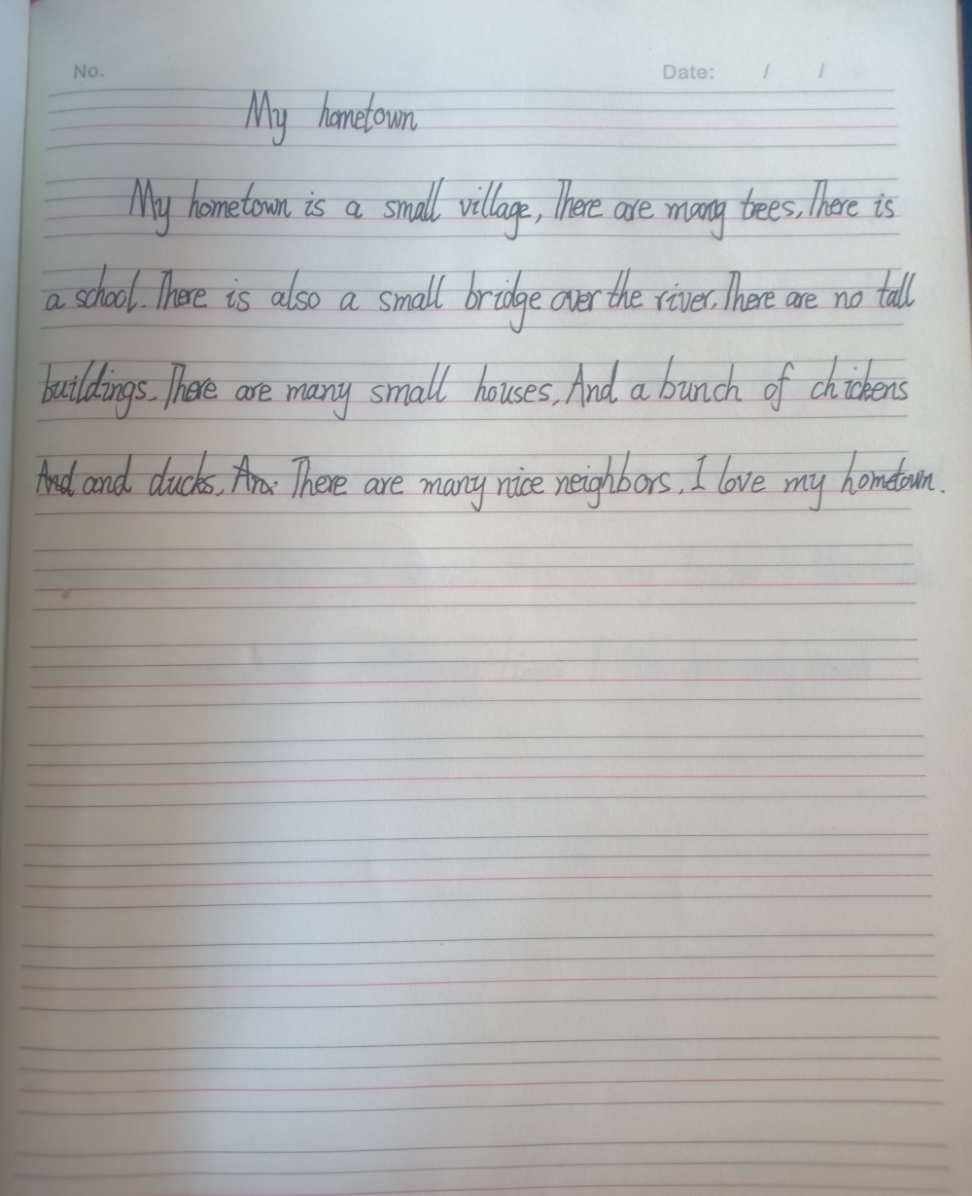 No. Date: / /
My hometown
My hometown is a small village, There are many trees, There is
a school. There is also a small bridge over the river. There are no tall
buildings. There are many small houses, And a bunch of chickens
And and ducks, There are many nice neighbors, I love my hometown.